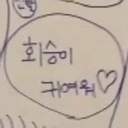 희승이
귀여워♡